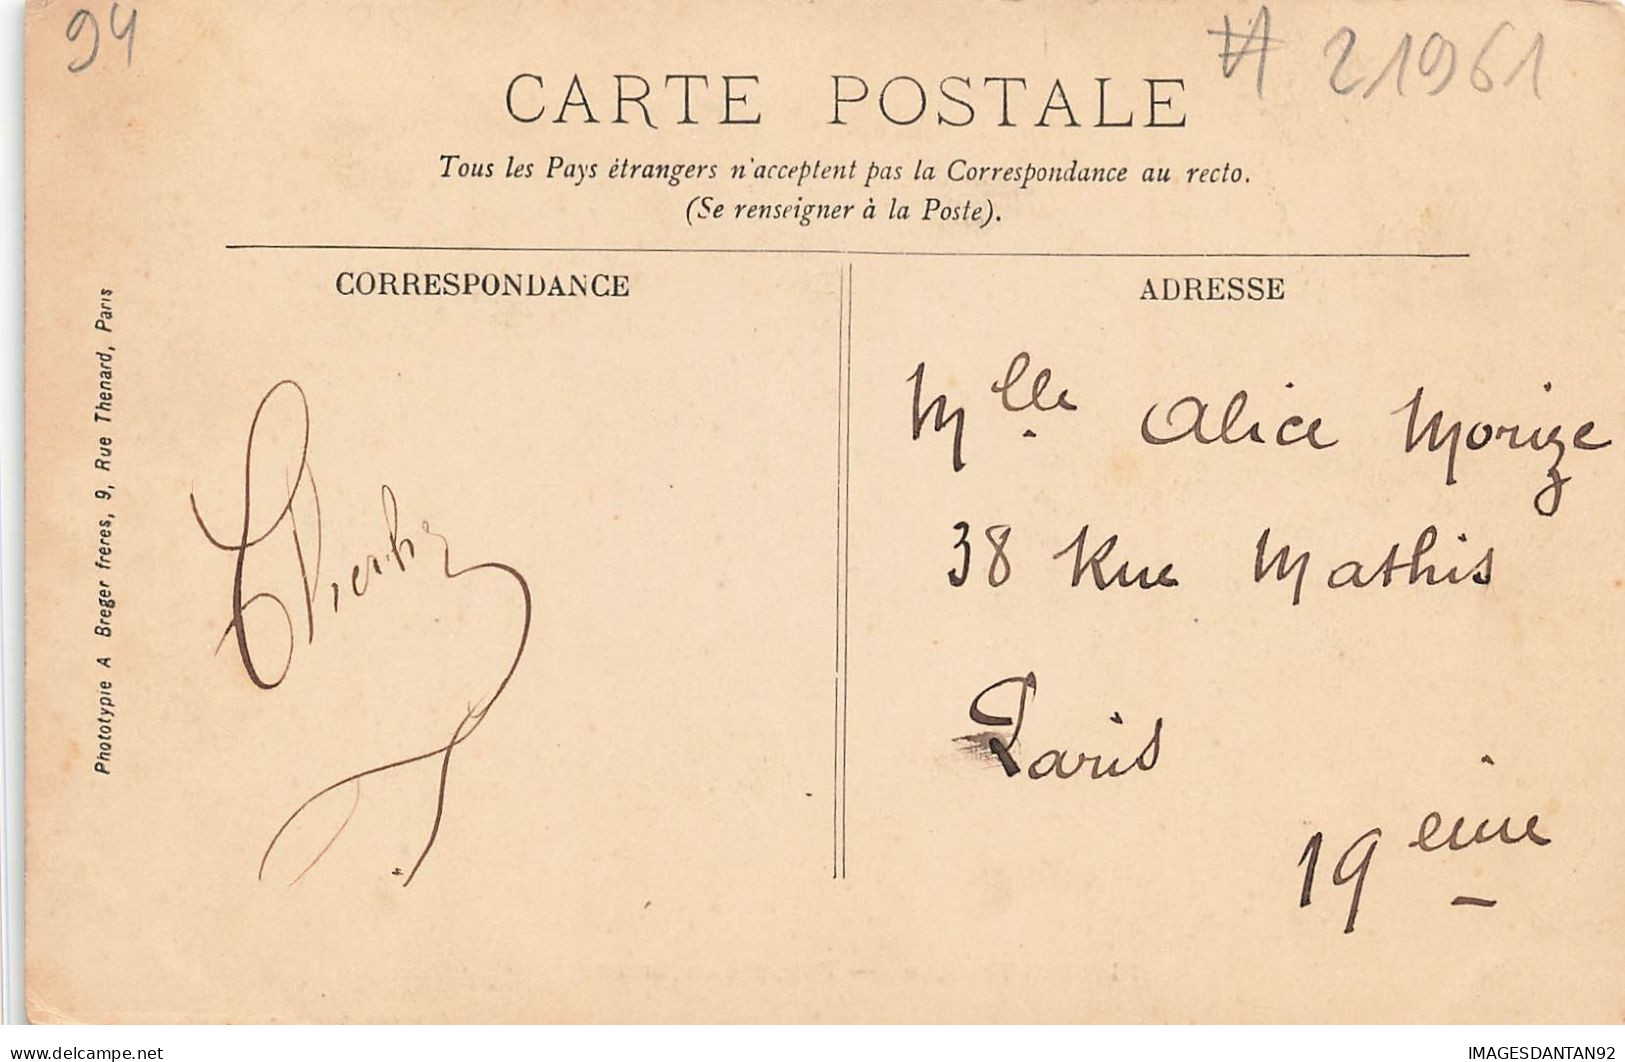 94
# 21961
CARTE POSTALE
Tous les Pays étrangers n'acceptent pas la Correspondance au recto.
(Se renseigner à la Poste).
CORRESPONDANCE
ADRESSE
Phototypie A Breger freres, 9, Rue Thenard, Paris
Mlle Alice Morize
38 Rue Mathis
Paris
19eme
www.delcampe.net
IMAGESDANTAN92